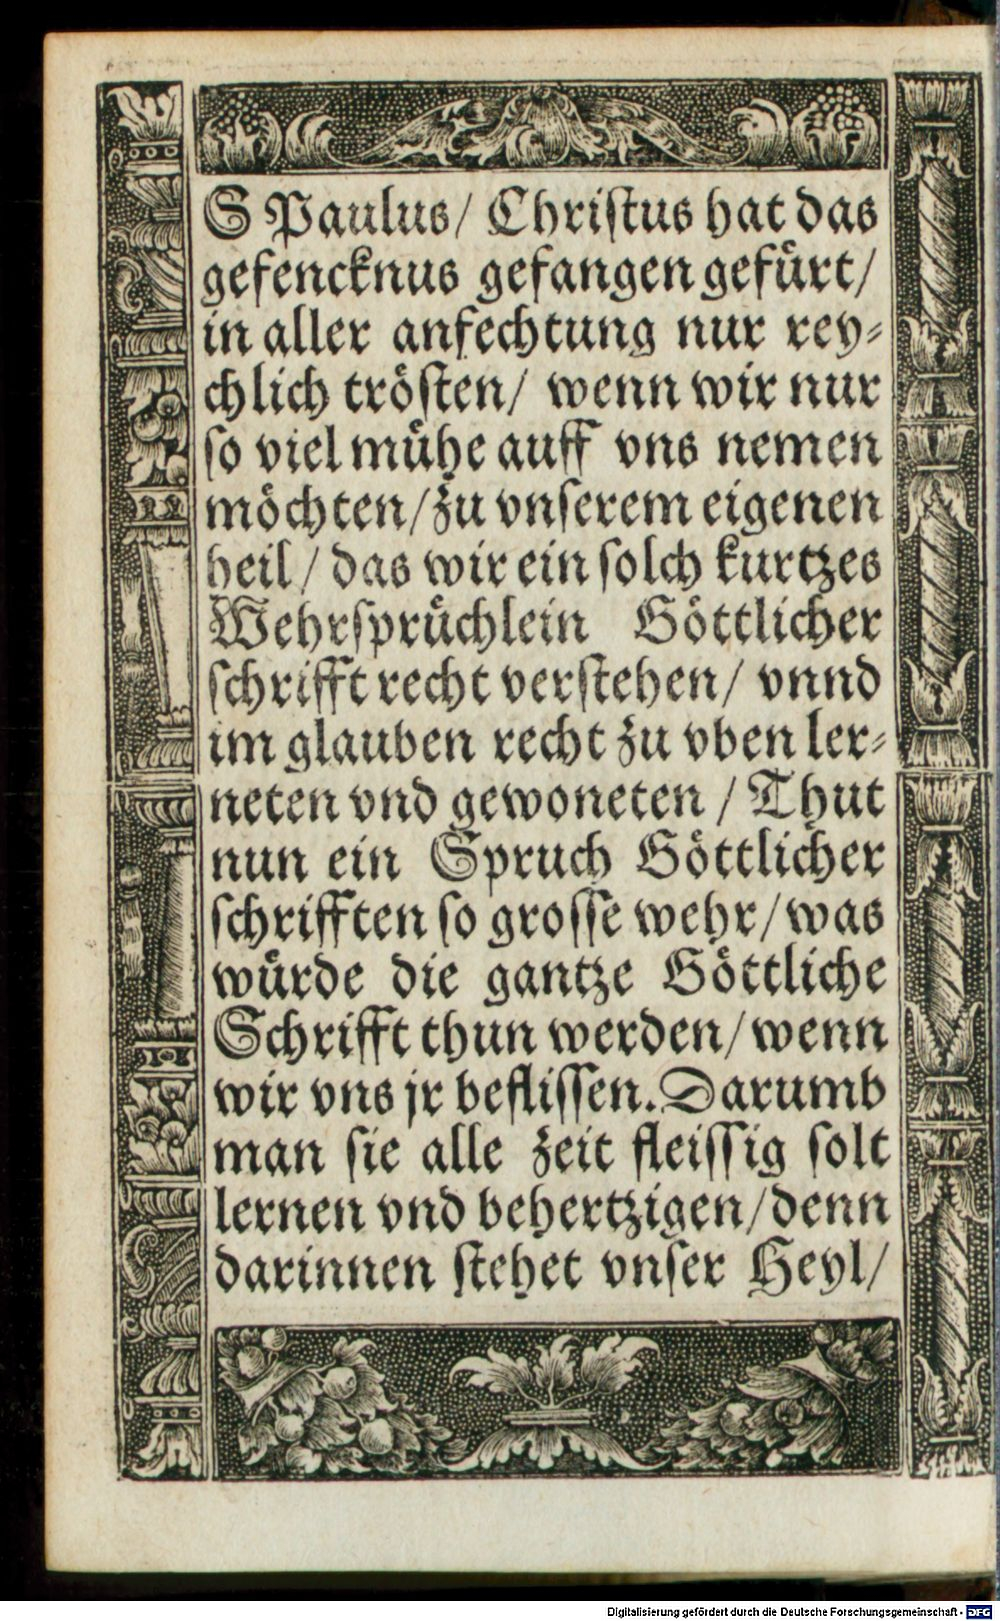 S Paulus/ Chriſtus hat das
gefencknus gefangen gefürt/
in aller anfechtung nur rey⸗
chlich tröſten/ wenn wir nur
ſo viel mühe auff vns nemen
möchten/zu vnſerem eigenen
heil/ das wir ein ſolch kurtzes
Wehrſprüchlein Göttlicher
ſchrifft recht verſtehen/ vnnd
im glauben recht zu vben ler⸗
neten vnd gewoneten / Thut
nun ein Spruch Göttlicher
ſchrifften ſo groſſe wehr/was
würde die gantze Göttliche
Schrifft thun werden/wenn
wir vns jr befliſſen. Darumb
man ſie alle zeit fleiſſig ſolt
lernen vnd behertzigen/denn
darinnen ſtehet vnſer Heyl/
Digitalisierung gefördert durch die Deutsche Forschungsgemeinschaft - DFG